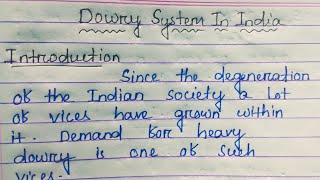 Dowry System In India
Introduction
Since the degeneration
of the Indian society a lot
of vices have grown within
it. Demand for heavy
dowry is one of such
vices.